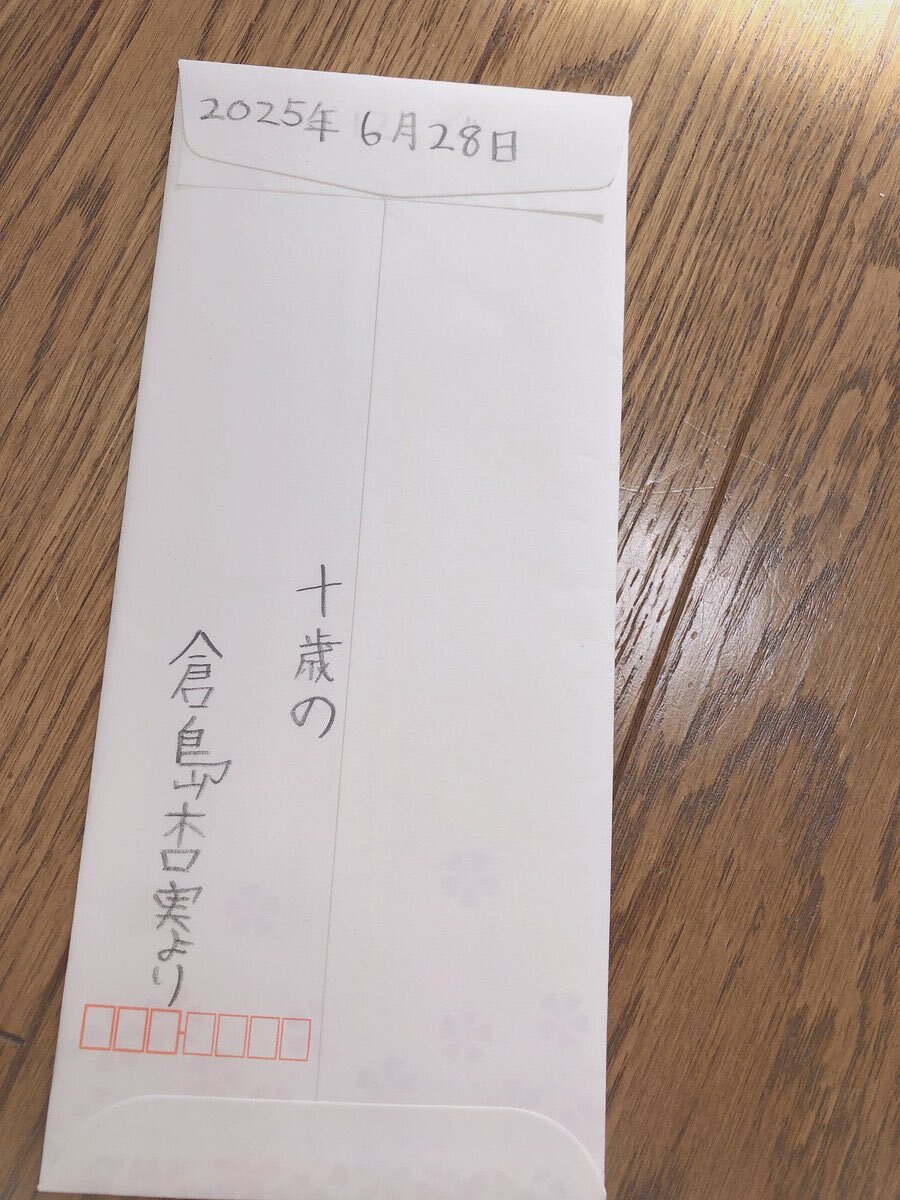 2025年 6月28日
十歳の
倉島杏実より